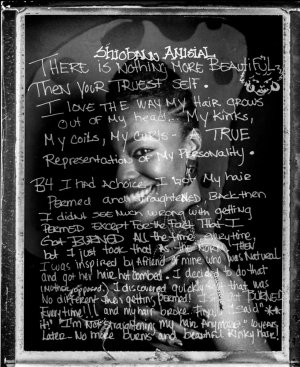 THERE IS NOTHING MORE BEAUTIFUL
THEN YOUR TRUEST SELF.
I LOVE THE WAY MY HAIR GROWS
OUT OF MY HEAD... MY KINKS,
MY COILS, MY CURLS - TRUE
REPRESENTATION OF MY PERSONALITY.
B4 I had A choice I got My hair
Permed and straightened, Back then
I didn't SEE MUCH wrong with getting
PERMED EXCEPT FOR THE FACT THAT I
Got BURNED All the time everytime
but I just took that As the
I was inspired by A friend of mine who was Natural
and got her hair hot combed. I decided to do that
I discovered quickly that was
No different then getting permed! I still got BURNED
Everytime!!! and my hair broke. Finally I said
it!" I'm NOT straightening my hair Anymore." years
Later No more burns and beautiful kinky hair!